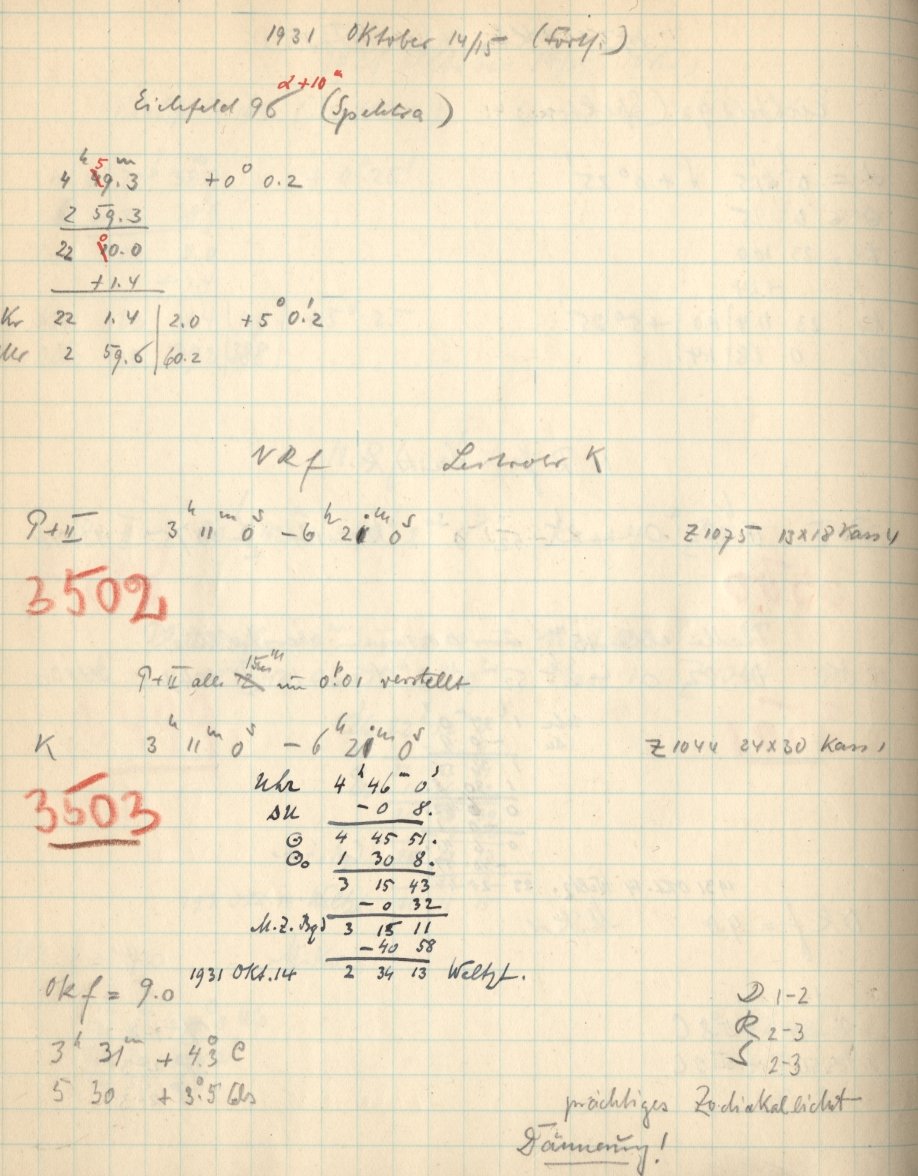 1931 Oktober 14/15 (Forts.)
α+10ᵐ
Eichfeld 96 (Spektra)
4ʰ 59.3ᵐ +0° 0.2
2 59.3
22 0.0
+1.4
Kr 22 1.4 | 2.0 +5° 0.'2
2 59.6 | 60.2
NRf Leitrohr K
P+II 3ʰ 11ᵐ 0ˢ – 6ʰ 21ᵐ 0ˢ Z1075 13x18 Kass 4
3502
P+II alle 15ᵐ um 0.01 verstellt
K 3ʰ 11ᵐ 0ˢ – 6ʰ 21ᵐ 0ˢ Z1044 24x30 Kass 1
3503
Uhr 4ʰ 46ᵐ 0ˢ
ΔU – 0 8.
☉ 4 45 51.
☉₀ 1 30 8.
3 15 43
– 0 32
M.Z. Bbg 3 15 11
– 40 58
1931 Okt. 14 2 34 13 Weltzt.
Okf = 9.0
D 1-2
R 2-3
S 2-3
3ʰ 31ᵐ + 4.°3 C
5 30 + 3.°5
prächtiges Zodiakallicht
Dämmerung!